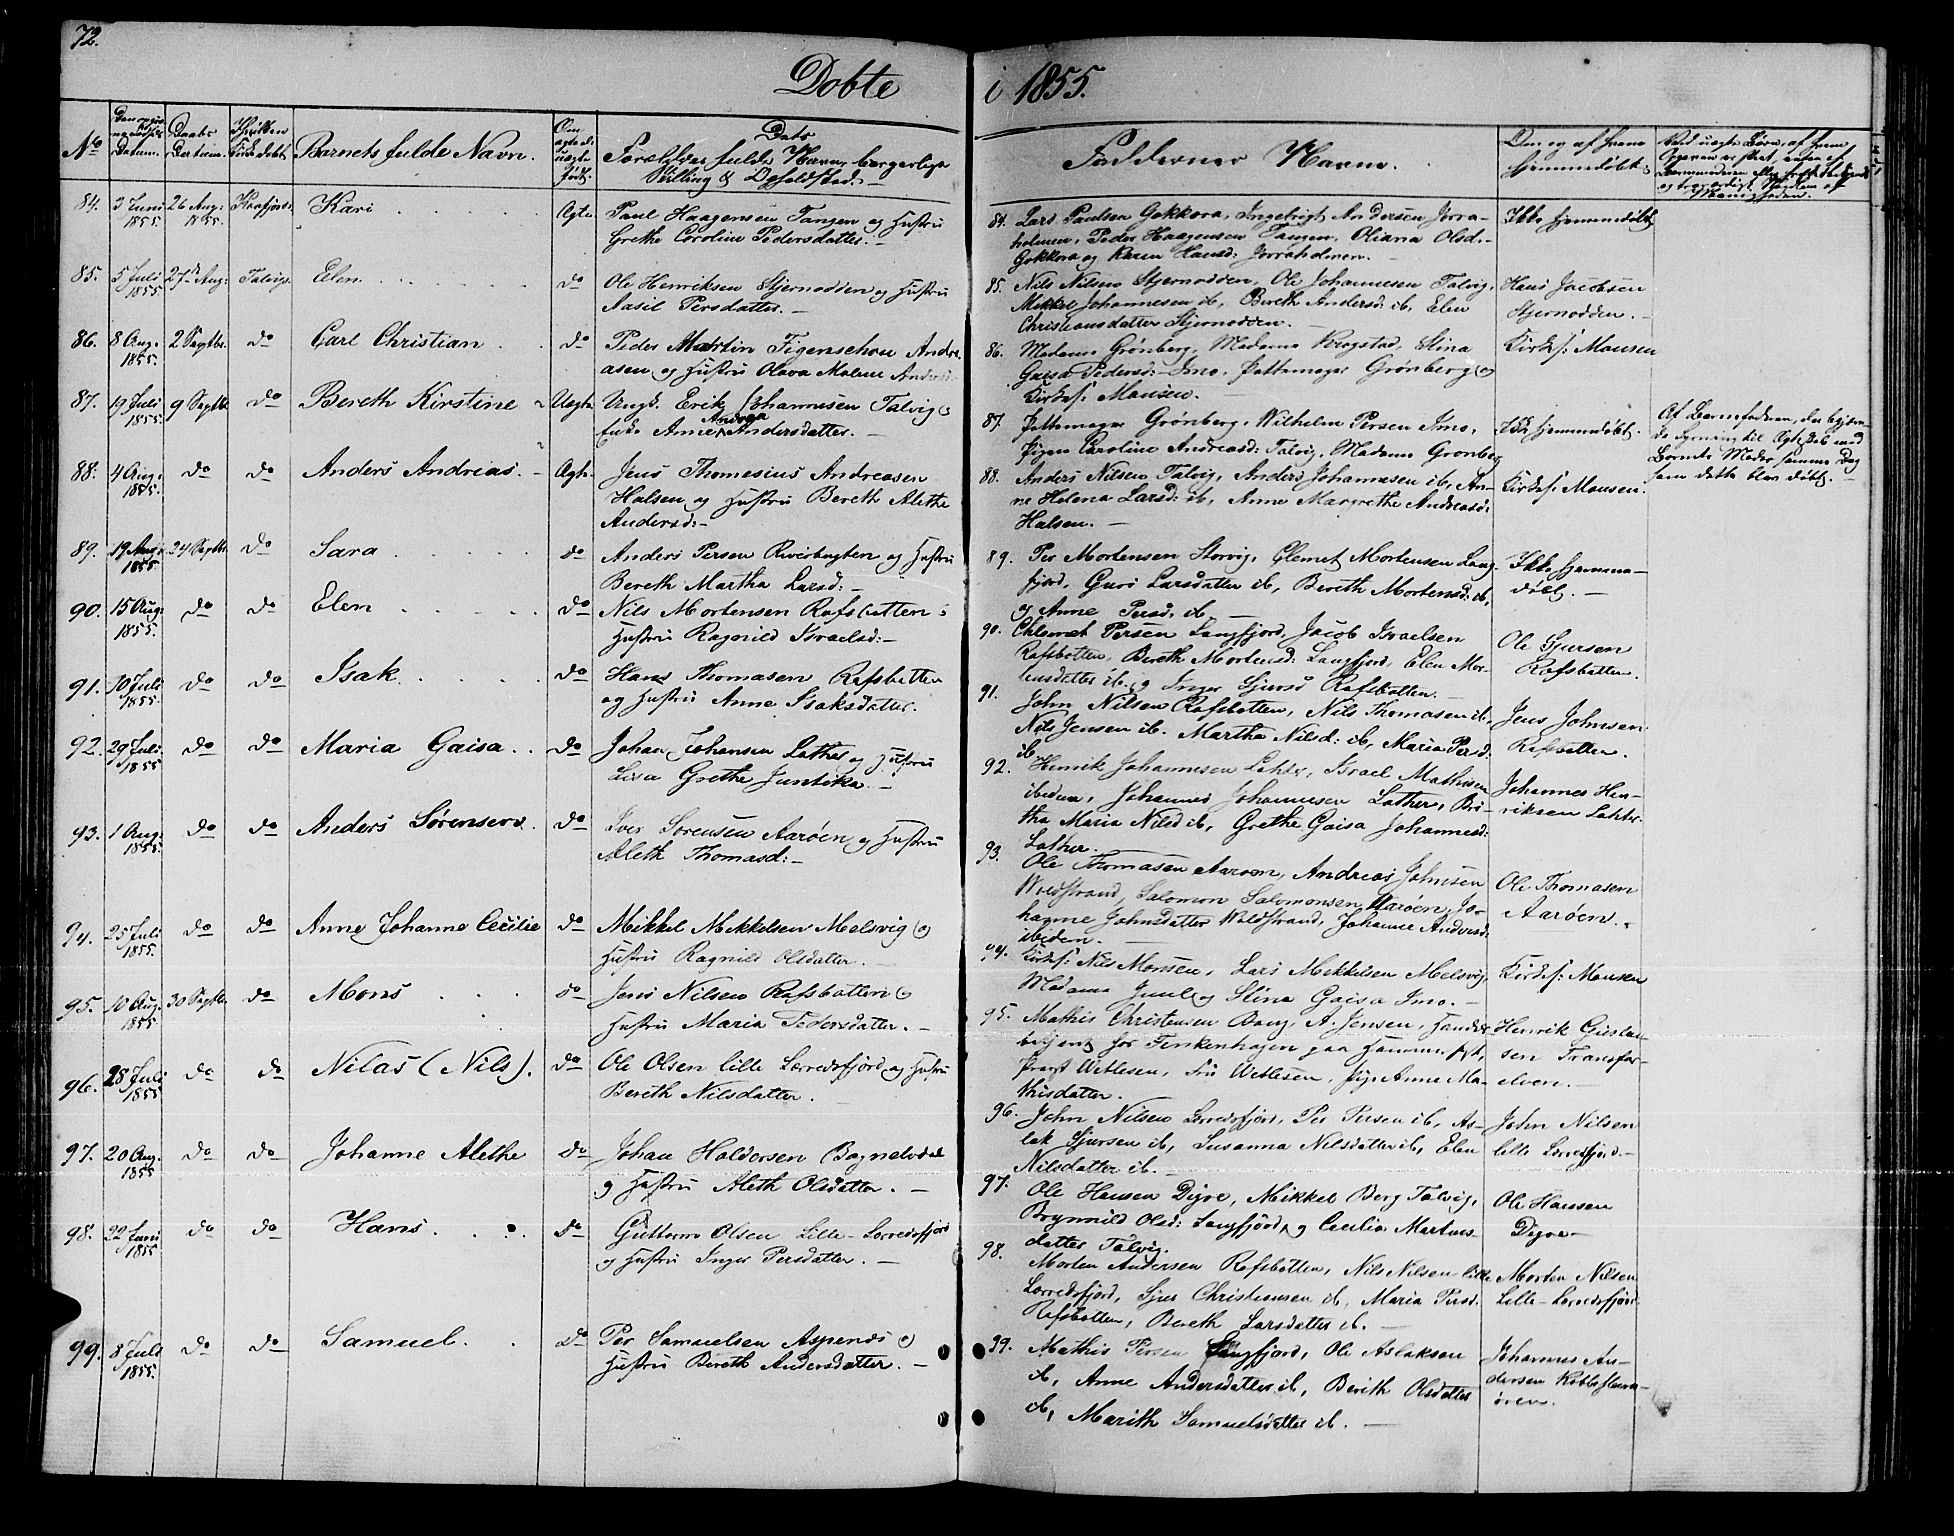 72.
Døbte
i 1855.
No
Daabs
Barnets fulde Navn.
Dets
Forældres fulde Navne, borgerlige
Stilling & Opholdsted.
Faddernes Navne.
Om og af hvem
hjemmedøbt.
84. 3 Juni 1855. 26 Aug: 1855. Kaafjord. Kari Ægte Paul Haagensen Tangen og Hustru
Grethe Caroline Pedersdatter.
84. Lars Paulsen Gokkora, Ingebrigt Andersen Jorra-
holmen, Peder Haagensen Tangen, Oliana Olsd.
Gokkora og Karen Hansd: Jorraholmen.
Ikke hjemmedøbt
85. 5 Juli 1855 27de Aug: Talvig. Elen do Ole Henriksen Stjernodden og Hustru
Aasil Persdatter.
85. Nils Nilsen Stjernodden, Ole Johannesen Talvig,
Mikkel Johannesen ib, Bereth Andersd: ib, Elen
Christiansdatter Stjernodden.
Hans Jacobsen
Stjernodden.
86. 8 Aug. 1855. 2 Septbr. do Carl Christian do Peder Martin Figenschou Andre
asen og Hustru Olava Malene Andersd.
86. Madame Grønberg, Madame Krogstad, Stina
Gaisa Pedersd: Imo, Pottemager Grønberg og
Kirkes: Monsen.
Kirkes: Monsen
87. 19 Juli 1855. 9 Septbr. do Bereth Kirstine Uægte Ungk. Erik Johannesen Talvig &
Enke Anne Andrea Andersdatter.
87. Pottemager Grønberg, Wilhelm Persen Imo,
Pigen Caroline Andreasd: Talvig, Madame Grønberg
Ikke hjemmedøbt.
Af Barnefaderen, der begjæ-
de Lysning til Ægteskab med
Barnets Moder samme Dag
som dette blev døbt.
88. 4 Aug. 1855. do do Anders Andreas. Ægte Jens Thomesius Andreasen
Halsen og Hustru Bereth Alethe
Andersd:
88. Anders Nilsen Talvig, Anders Johannesen ib, An-
ne Helena Larsd: ib, Anne Margrethe Andreasd:
Halsen.
Kirkes: Monsen.
89. 19 Aug. 1855. 24 Septbr. do Sara do Anders Persen Riverbugten og Hustru
Bereth Martha Larsd:
89. Per Mortensen Storvig, Clemet Mortensen Lang
fjord, Guri Larsdatter ib, Bereth Mortensd: ib,
og Anne Persd. ib
Ikke hjemme-
døbt.
90. 15 Aug: 1855. do do Elen do Nils Mortensen Rafsbotten &
Hustru Ragnild Israelsd:
90. Chlemet Persen Langfjord, Jacob Israelsen
Rafsbotten, Bereth Mortensd: Langfjord, Elen Mor-
tensdatter ib og Inger Sjursd Rafsbotten.
Ole Sjursen
Rafsbotten.
91. 10 Juli 1855. do do Isak do Hans Thomasen Rafsbotten
og Hustru Anne Isaksdatter.
91. John Nilsen Rafsbotten, Nils Thomasen ib,
Nils Jensen ib. Martha Nilsd: ib, Maria Persd:
ib
Jens Johnsen
Rafsbotten.
92. 29 Juli 1855 do do Maria Gaisa do Johan Johansen Lather og Hustru
Lisa Grethe Juntika
92. Henrik Johannesen Lahter, Israel Mathisen
ibidem, Johannes Johannesen Lather, Bri-
tha Maria Nilsd ib, Grethe Gaisa Johannesd:
Lather.
Johannes Hen-
riksen Lahter.
93. 1 Aug. 1855. do do Anders Sørensen. do Iver Sørensen Aarøen og Hustru
Aleth Thomasd:
93. Ole Thomasen Aarøen, Andreas Johnsen
Woldstrand, Salomon Salomonsen Aarøen, Jo-
hanne Johnsdatter Woldstrand, Johanne Andersd:
ibidem.
Ole Thomasen
Aarøen.
94. 25 Juli 1855. do do Anne Johanne Cecilie do Mikkel Mikkelsen Melsvig og
Hustru Ragnild Olsdatter.
94. Kirkes: Nils Monsen, Lars Mikkelsen Melsvig,
Madame Juul og Stina Gaisa Imo.
Kirkes: Monsen
95. 10 Aug. 1855 30 Septbr. do Mons do Jens Nilsen Rafsbotten og
Hustru Maria Pedersdatter.
95. Mathis Christensen Bang, A. Jensen, Handels
betjent for Finkenhagen paa Hammerfest,
Provst Wetlesen, Fru Wetlesen, Pige Anne Ma-
thisdatter.
Henrik Gustav
sen Transfar-
elven.
96. 28 Juli 1855 do do Nilas (Nils). do Ole Olsen lille Lerredsfjord og Hustru
Bereth Nilsdatter.
96. John Nilsen Lerredsfjord, Per Persen ib, As-
lak Sjursen ib, Susanna Nilsdatter ib, Elen
Nilsdatter ib.
John Nilsen
lille Lerredsfjord.
97. 20 Aug. 1855 do do Johanne Alethe do Johan Haldorsen Bognelvdal
og Hustru Aleth Olsdatter.
97. Ole Hansen Digre, Mikkel Berg Talvig,
Brynnild Olsd: Langfjord, og Cecilia Martins-
datter Talvig.
Ole Hansen
Digre
98. 22 Juni 1855 do do Hans do Guttorm Olsen Lille-Lerredsfjord
og Hustru Inger Persdatter.
98. Morten Andersen Rafsbotten, Nils Nilsen lille
Lerredsfjord, Sjur Christiansen ib, Maria Persd:
Rafsbotten, Bereth Larsdatter ib.
Morten Nilsen
Lille-Lerredsfjord
99. 8 Juli 1855. do do Samuel. do Per Samuelsen Aspenes og
Hustru Bereth Andersdatter.
99. Mathis Persen Langfjord, Ole Aslaksen
ib, Anne Andersdatter ib, Berith Olsdatter
ib, Marith Samuelsdatter ib.
Johannes An-
dersen
øren.